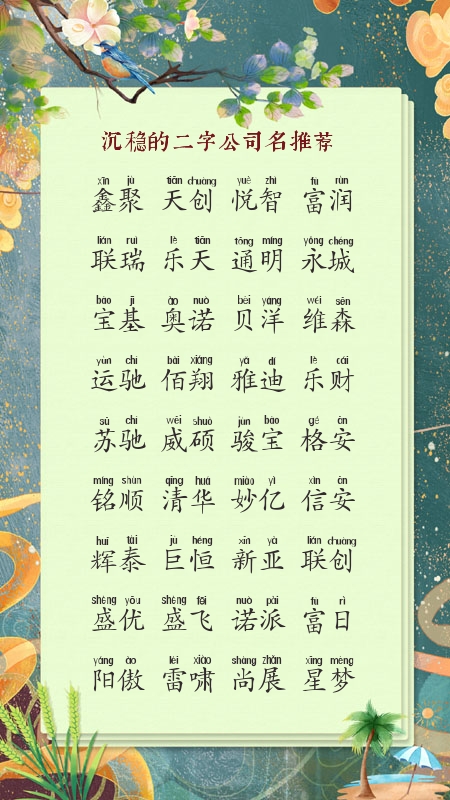 沉稳的二字公司名推荐
xīn jù tiān chuàng yuè zhì fù rùn
鑫聚 天创 悦智 富润
lián ruì lè tiān tōng míng yǒng chéng
联瑞 乐天 通明 永城
bǎo jī ào nuò bèi yáng wéi sēn
宝基 奥诺 贝洋 维森
yùn chí bǎi xiáng yǎ dí lè cái
运驰 佰翔 雅迪 乐财
sū chí wēi shuò jùn bǎo gé ān
苏驰 威硕 骏宝 格安
míng shùn qīng huá miào yì xìn ān
铭顺 清华 妙亿 信安
huī tài jù héng xīn yà lián chuàng
辉泰 巨恒 新亚 联创
shèng yōu shèng fēi nuò pài fù rì
盛优 盛飞 诺派 富日
yáng ào léi xiào shàng zhǎn xīng mèng
阳傲 雷啸 尚展 星梦